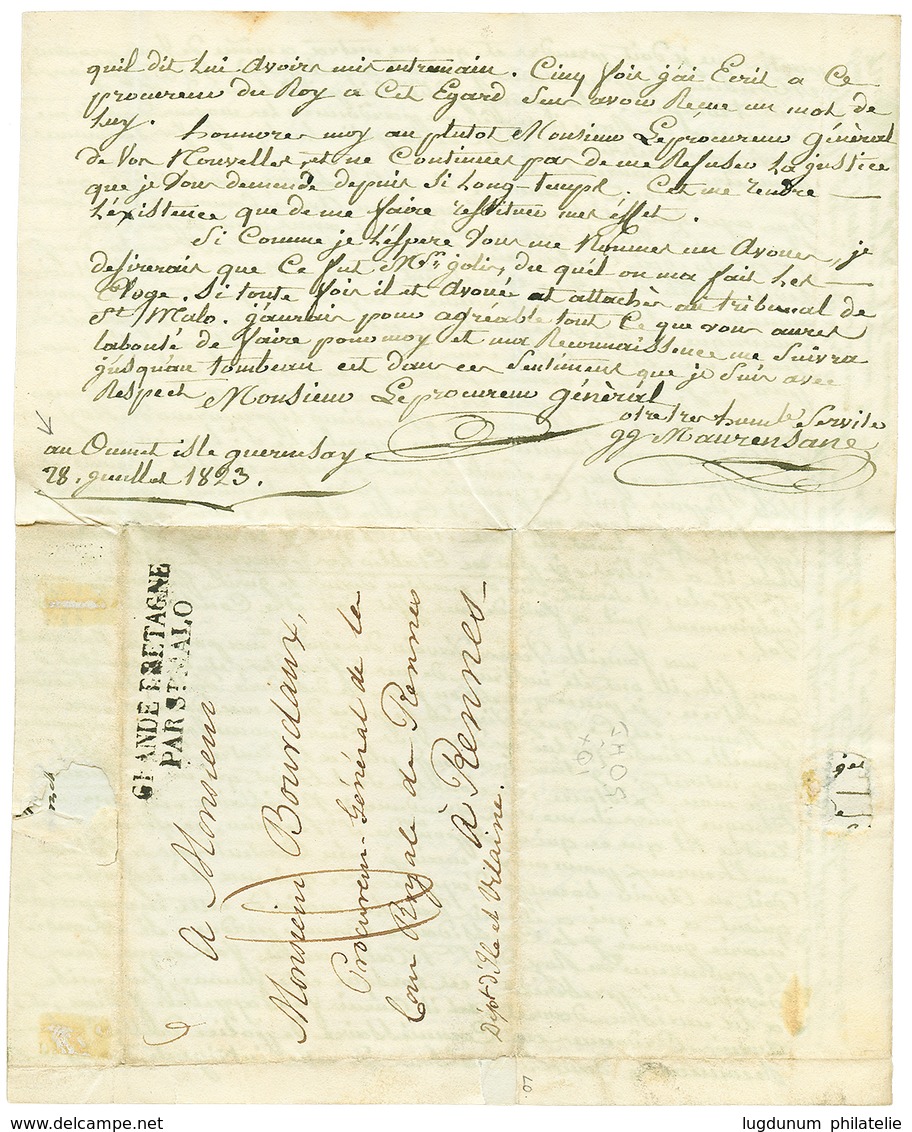 quil dit lui avoirs mis entremain. Cinq fois j'ai Ecrit a Ce
procureur du Roy a Cet Egard sans avoir Reçue un mot de
luy.
honnores moy au plutot Monsieur Leprocureur général
de Vos Nouvelles, et ne Continues pas de me Refuser la justice
que je Vous demende depuis si Long-temps. Cet me rendre
L'éxistence que de me faire restituer mes éffet.
Si Comme je l'éspere Vous me Nommes un Avouer, je
desirerais que Ce fut Mr. jolis, du quél on ma fait Les
Eloge. Si toute fois il et Avoué et attachér au tribunal de
St Malo. j'aurais pour agreable tout Ce que vous aures
labonté de faire pour moy et ma Reconnaissence me Suivra
jusqu'au tombeau est dans ces Sentiment que je Suis avec
Respect Monsieur Leprocureur général
otre tres humble Servite
gg Maurensane
au Oumet isle guernsay
28. juillet 1823.
GRANDE BRETAGNE
PAR ST MALO
A Monsieur
Monsieur Bourdaux,
Procureur-Général de la
Cour Royale de Rennes
à Rennes
Dépt. d'Ile et Vilaine.
07
lugdunum philatelie